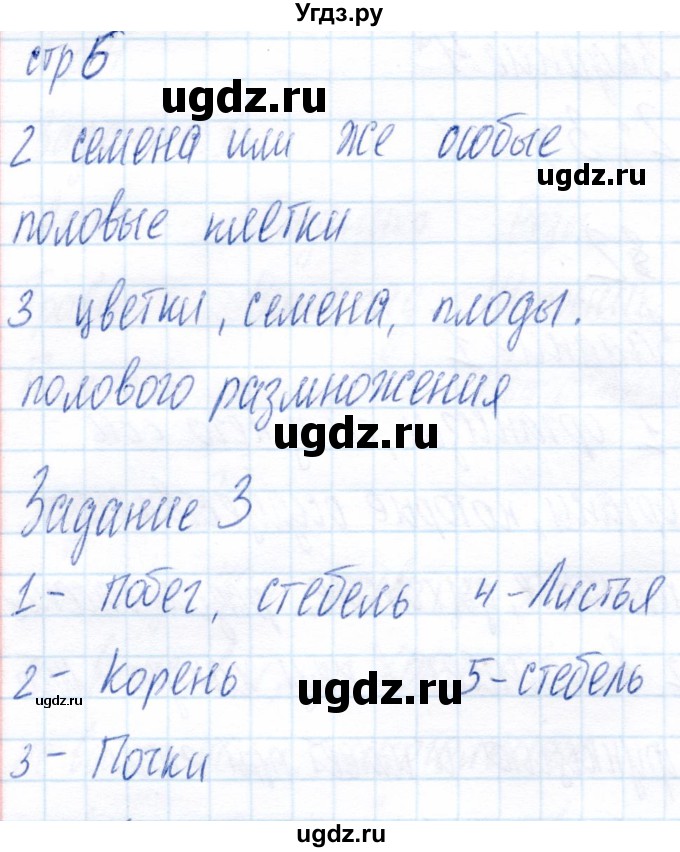 Угдз.ру
стр 5
ugdz.ru
2 семена или же особые
ugdz.ru
половые клетки
3 цветки, семена, плоды.
полового размножения
ugdz.ru
Задание 3
1 - Побег, стебель 4 - Листья
2 - Корень 5 - стебель
ugdz.ru
ugdz.ru
3 - Почки
ugdz.ru